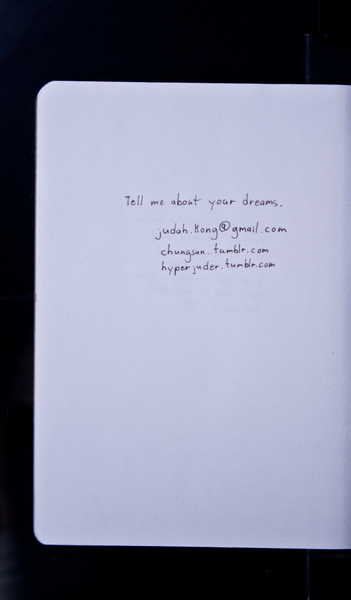 Tell me about your dreams.
judah.kong@gmail.com
chungsun.tumblr.com
hyperjuder.tumblr.com